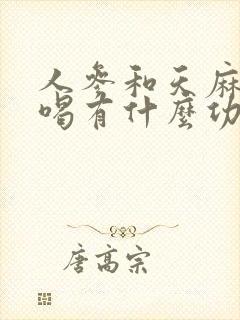 人參和天麻
喝有什麼功
唐高宗